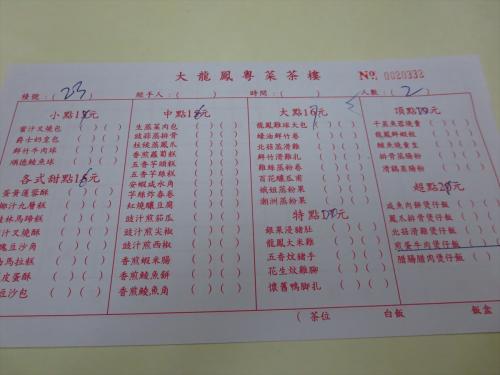 大龍鳳粵菜茶樓 No. 0020332
檯號:( 23 ) 經手人:( ) 時間:( ) 人數:( 2 )
小點 元
蜜汁叉燒包 ( ) ( )
爵士奶皇包 ( ) ( )
鮮竹牛肉球 ( ) ( )
順德鯪魚球 ( ) ( )
各式甜點 元
蛋黃蓮蓉酥 ( ) ( )
椰汁九層糕 ( ) ( )
桂林馬蹄糕 ( ) ( )
豆沙角 ( ) ( )
馬拉糕 ( ) ( )
皮蛋酥 ( ) ( )
豆沙包 ( ) ( )
中點 元
生蒸菜肉包 ( ) ( )
豉蒜蒸排骨 ( ) ( )
柱候蒸鳳爪 ( ) ( )
香煎蘿蔔糕 ( ) ( )
五香芋頭糕 ( ) ( )
五香芋絲糕 ( ) ( )
安蝦咸水角 ( ) ( )
芋絲炸春卷 ( ) ( )
紅燒釀豆腐 ( ) ( )
豉汁煎茄瓜 ( ) ( )
豉汁煎尖椒 ( ) ( )
豉汁煎西椒 ( ) ( )
香煎蝦米腸 ( ) ( )
香煎鯪魚餅 ( ) ( )
香煎鯪魚角 ( ) ( )
大點 元
龍鳳雞球大包 ( ) ( )
蠔油鮮竹卷 ( ) ( )
北菇蒸滑雞 ( ) ( )
鮮竹滑雞扎 ( ) ( )
雞絲蒸粉卷 ( ) ( )
百花釀瓜甫 ( ) ( )
娥姐蒸粉果 ( ) ( )
潮洲蒸粉果 ( ) ( )
特點 元
銀果浸豬肚 ( ) ( )
龍鳳大米雞 ( ) ( )
五香炆豬手 ( ) ( )
花生炆雞腳 ( ) ( )
懷舊鴨腳扎 ( ) ( )
頂點 元
干蒸魚蓉燒賣 ( ) ( )
龍鳳鮮蝦餃 ( ) ( )
鯪魚燒賣皇 ( ) ( )
排骨蒸腸粉 ( ) ( )
滑雞蒸腸粉 ( ) ( )
超點 元
咸魚肉餅煲仔飯 ( ) ( )
鳳爪排骨煲仔飯 ( ) ( )
北菇滑雞煲仔飯 ( ) ( )
煎蛋牛肉煲仔飯 ( ) ( )
腊腸腊肉煲仔飯 ( ) ( )
( 茶位 白飯 飯盒